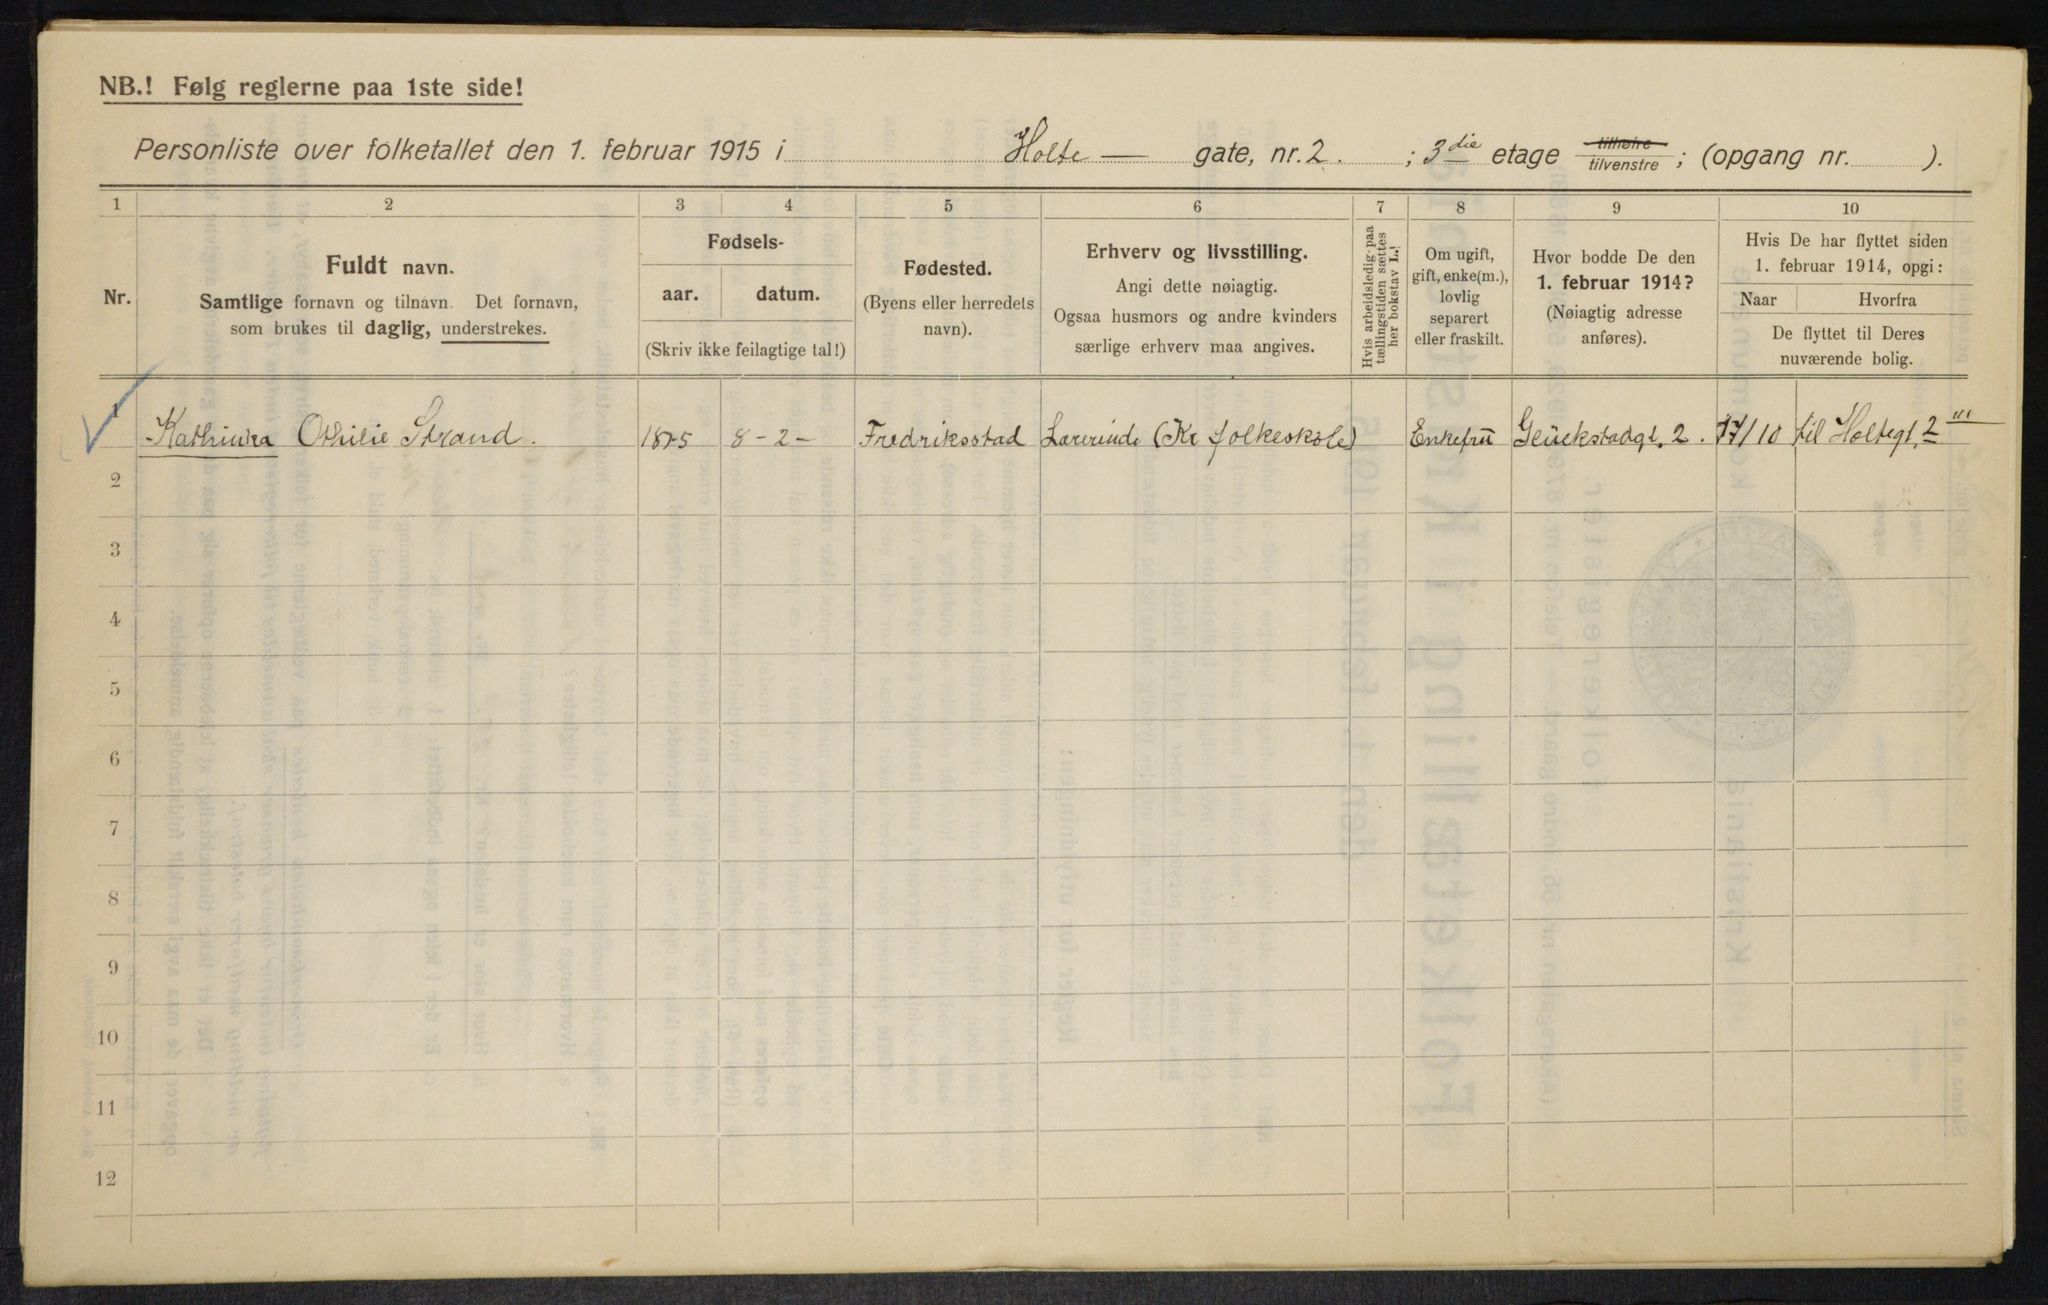 NB.! Følg reglerne paa 1ste side!
Personliste over folketallet den 1. februar 1915 i Holte — gate, nr. 2 ; 3die etage tilhøire/tilvenstre; (opgang nr. ).
1 2 3 4 5 6 7 8 9 10
Nr.
Fuldt navn.
Samtlige fornavn og tilnavn. Det fornavn,
som brukes til daglig, understrekes.
Fødsels-
aar. datum.
(Skriv ikke feilagtige tal!)
Fødested.
(Byens eller herredets
navn).
Erhverv og livsstilling.
Angi dette nøiagtig.
Ogsaa husmors og andre kvinders
særlige erhverv maa angives.
Hvis arbeidsledig paa
tællingstiden sættes
her bokstav L.!
Om ugift,
gift, enke(m.),
lovlig
separert
eller fraskilt.
Hvor bodde De den
1. februar 1914?
(Nøiagtig adresse
anføres).
Hvis De har flyttet siden
1. februar 1914, opgi:
Naar Hvorfra
De flyttet til Deres
nuværende bolig.
1 Kathinka Othilie Strand. 8-2- Fredriksstad Lærerinde (Kr folkeskole) Enkefru Glückstadgt. 2. /10 til Holtegt. 2 III
2
3
4
5
6
7
8
9
10
11
12